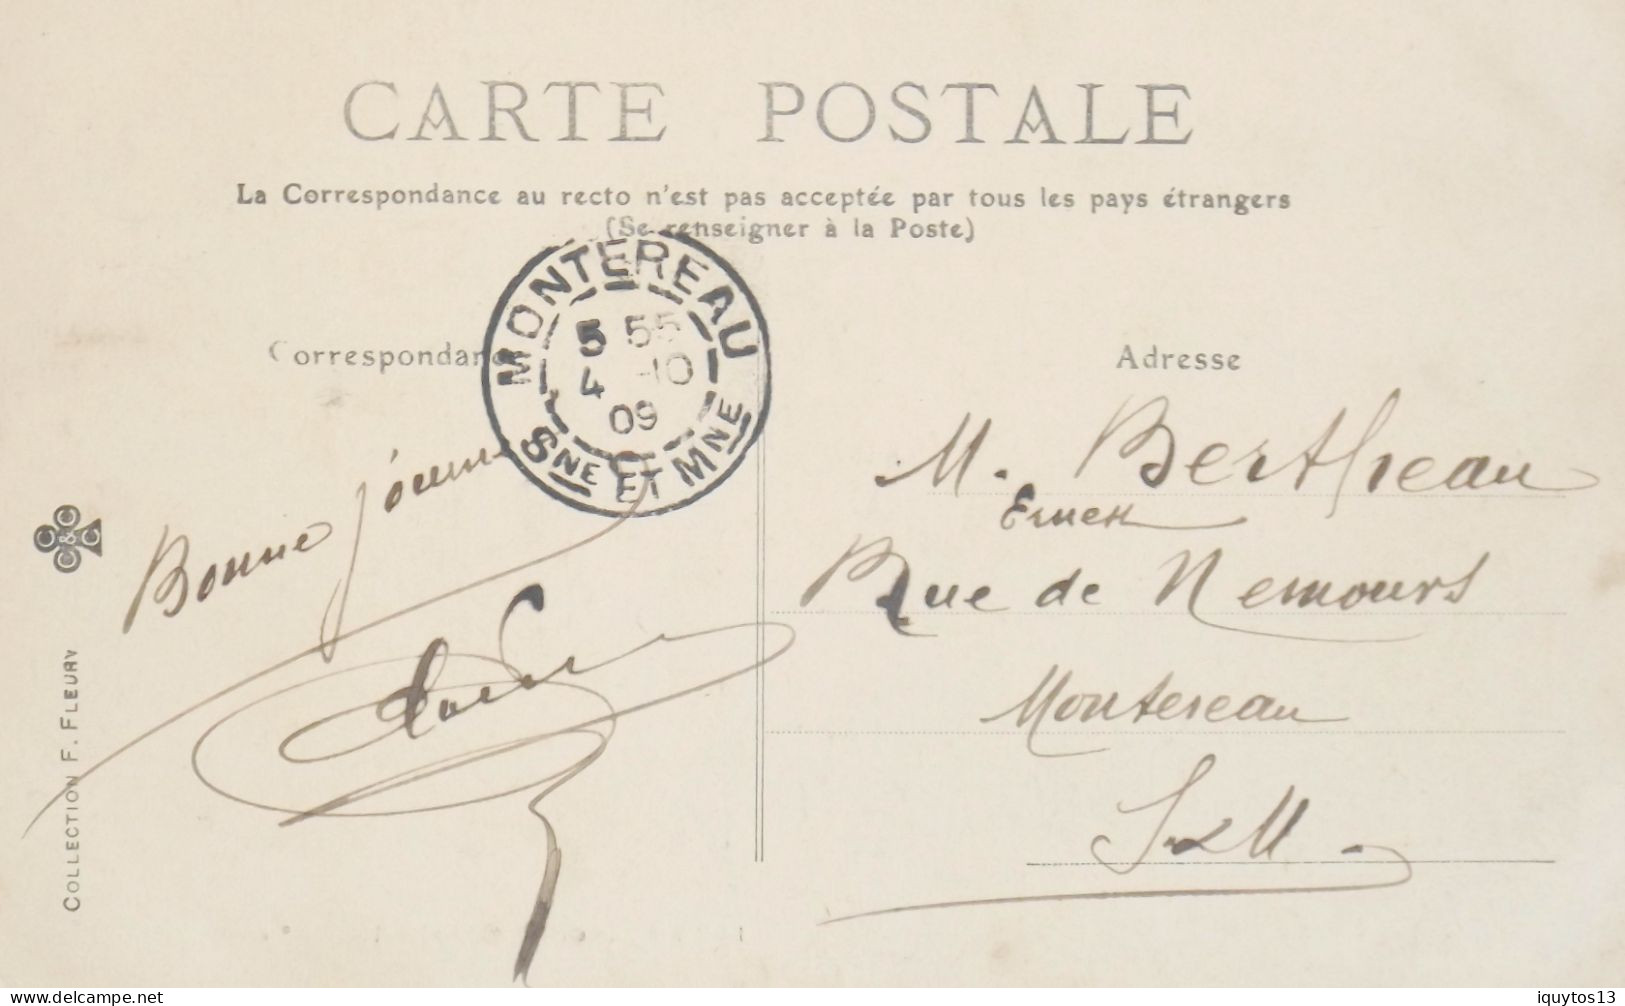 CARTE POSTALE
La Correspondance au recto n'est pas acceptée par tous les pays étrangers
(Se renseigner à la Poste)
MONTEREAU
5 55
4 -10
09
SNE ET MNE
Correspondance
Bonne
COLLECTION F. FLEURY
C & C
Adresse
M. Bertheau
Ernest
Rue de Nemours
Montereau
S. & M.
www.delcampe.net
iquytos13